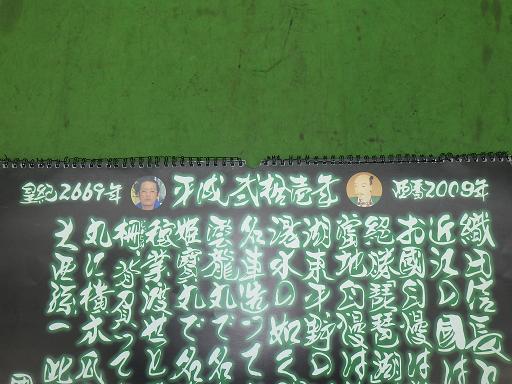 皇紀2669年 平成弐拾壱年 西暦2009年
織田信長と
近江の國
お國自慢は
絶勝琵琶湖
蛍地自慢は
湖東平野の
湯水の如く
名車造って
雲龍丸で名
姫寶丸で名
穂掌渡せと
柵背負って
丸に横木瓜
之西孫一此
國